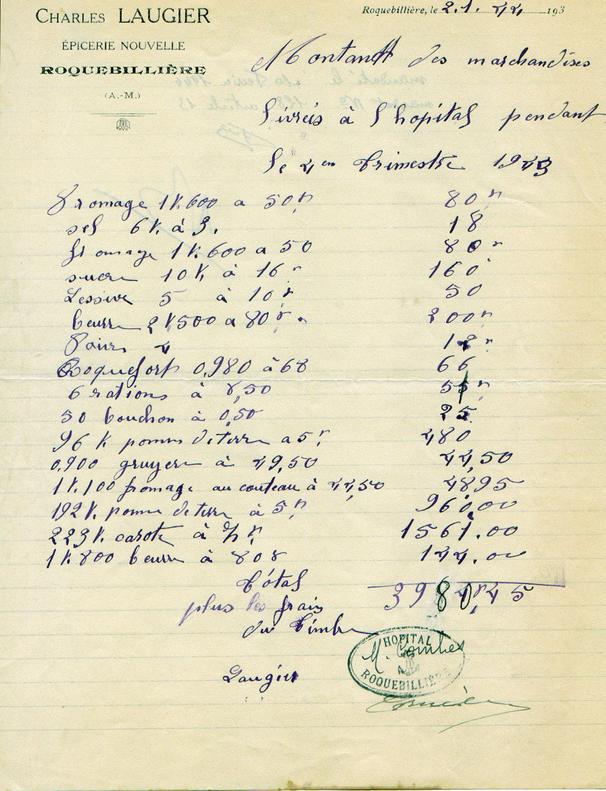 CHARLES LAUGIER
ÉPICERIE NOUVELLE
ROQUEBILLIÈRE
(A.-M.)
Roquebillière, le 21. 44 193
Montant des marchandises
livrés à l'hopital pendant
le 4em trimestre 1943
fromage 1k.600 a 50f 80f
sel 6k à 3. 18
fromage 1k.600 a 50 80f
sucre 10k à 16f 160
Lessive 5 à 10f 50
beurre 2k500 a 80f 200f
Roquefort 0,980 à 68 66
6 rations à 8,50
50 bouchon à 0,50 25
96 k pomm deterre a 5f 480
0,900 gruyere à 49,50 44,50
1k.100 fromage au couteau à 44,50 48 95
192k. pomm deterre à 5f 960.00
223k carote à 7f 1561.00
1k.800 beurre à 80f 144.00
Total 3980,45
plus les frais
du Timbre
Laugier
HOPITAL
M. Combes
ROQUEBILLIÈRE